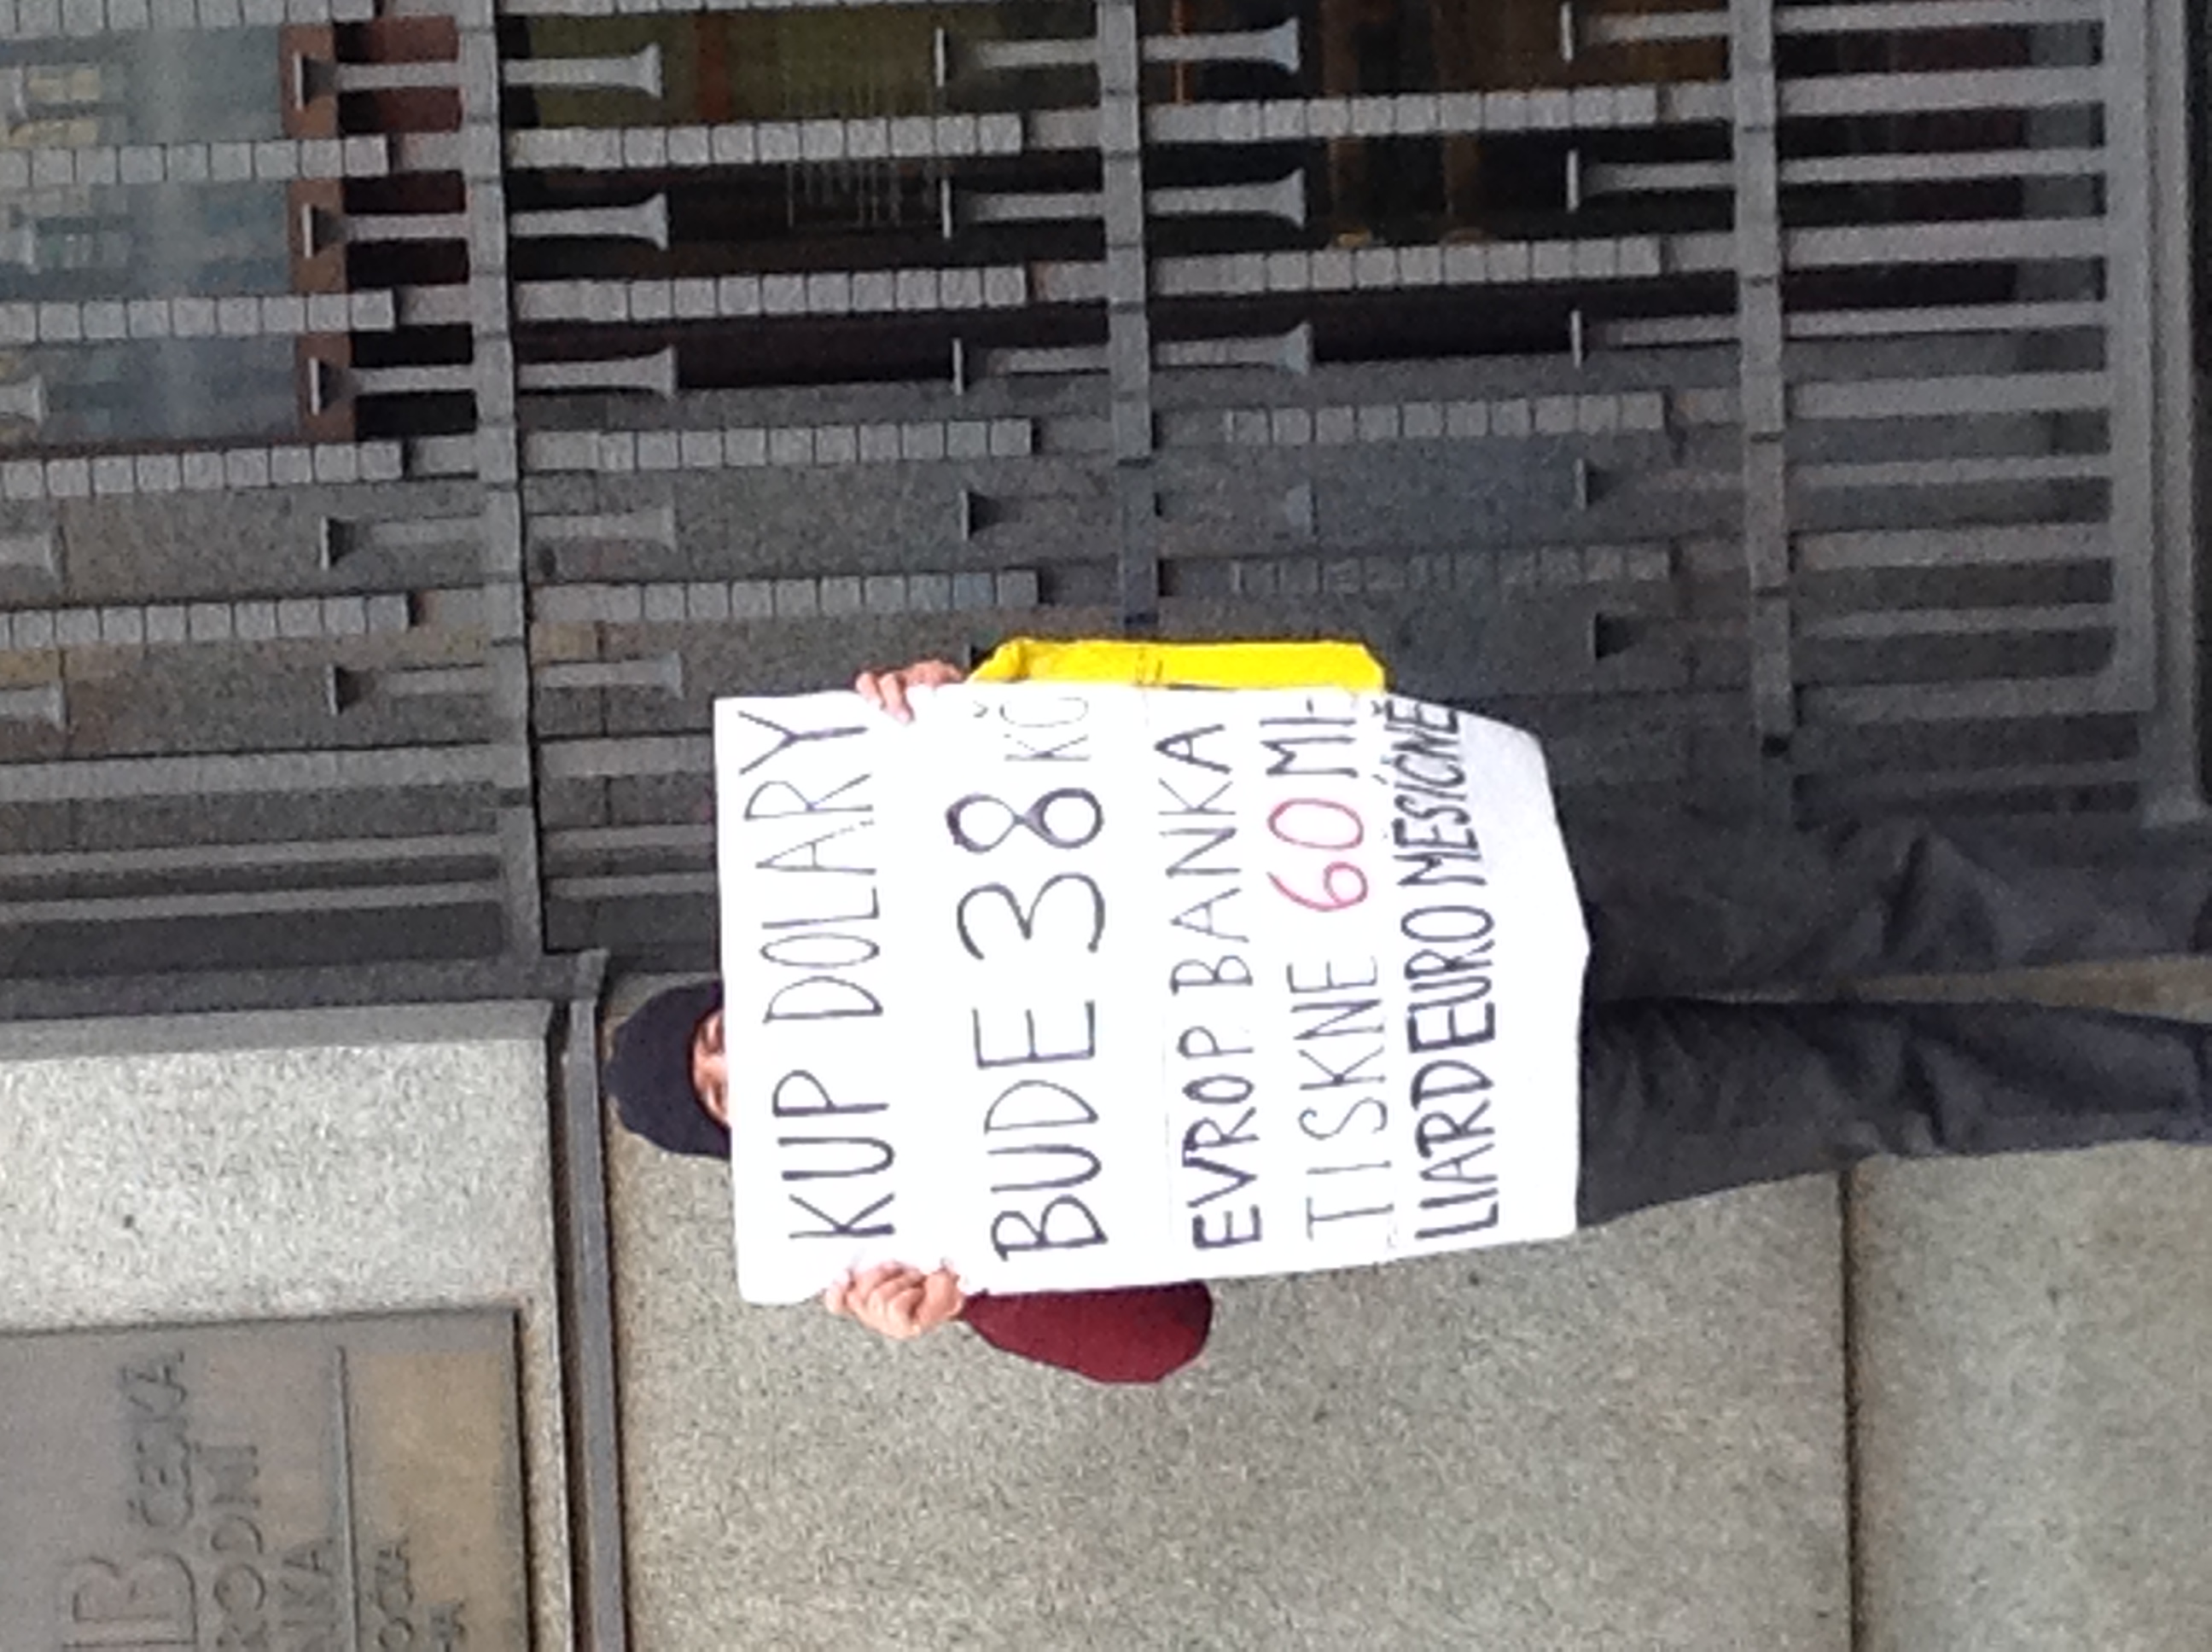 KUP DOLARY
BUDE 38 KČ
EVROP BANKA
TISKNE 60 MI-
LIARD EURO MĚSÍČNĚ
ČESKÁ